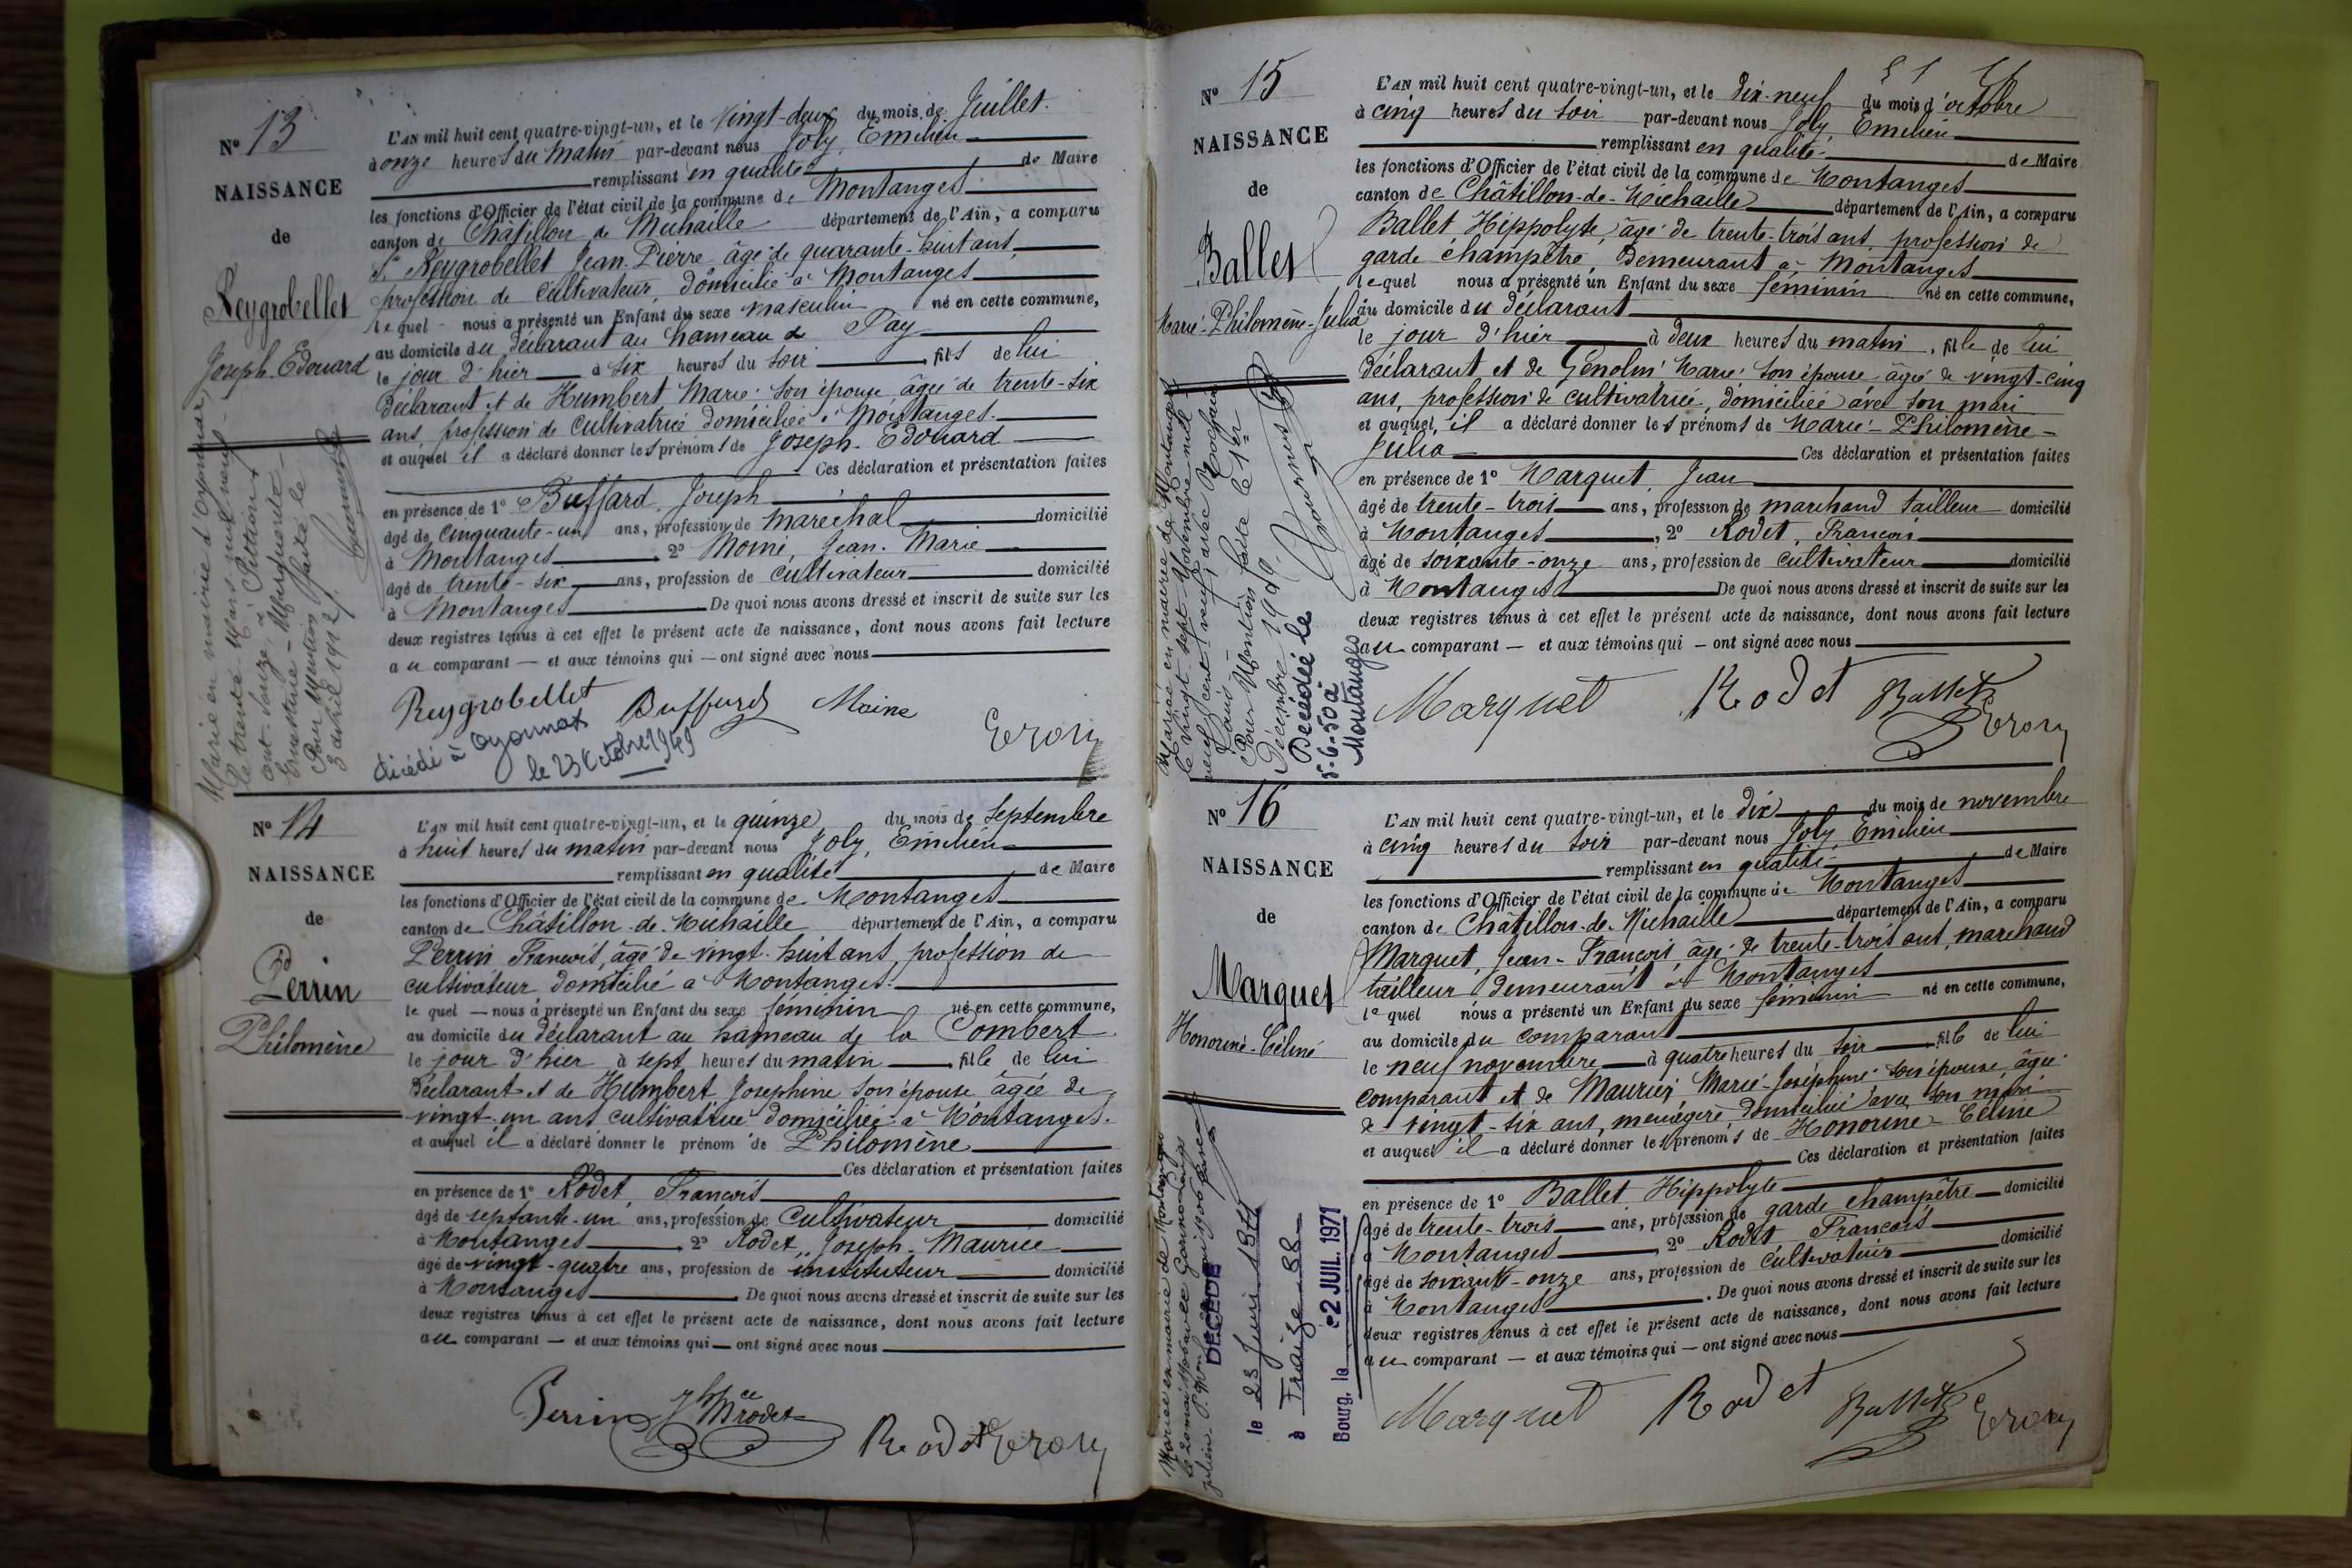 N° 13
NAISSANCE
de
Reygrobellet
Joseph-Edouard
L'AN mil huit cent quatre-vingt-un, et le vingt-deux du mois de Juillet
à onze heures du matin par-devant nous Joly, Emilien
remplissant en qualité de Maire
les fonctions d'Officier de l'état civil de la commune de Montanges
canton de Châtillon de Michaille département de l'Ain, a comparu
S. Reygrobellet Jean-Pierre âgé de quarante-huit ans,
profession de cultivateur, domicilié à Montanges
lequel nous a présenté un Enfant du sexe masculin né en cette commune,
au domicile du déclarant au hameau de Pay
le jour d'hier à six heures du soir fils de lui
déclarant et de Humbert Marie son épouse âgée de trente-six
ans, profession de cultivatrice domiciliée à Montanges.
et auquel il a déclaré donner les prénoms de Joseph-Edouard
Ces déclaration et présentation faites
en présence de 1° Buffard, Joseph
âgé de cinquante-un ans, profession de maréchal domicilié
à Montanges 2° Moine, Jean-Marie
âgé de trente-six ans, profession de cultivateur domicilié
à Montanges De quoi nous avons dressé et inscrit de suite sur les
deux registres tenus à cet effet le présent acte de naissance, dont nous avons fait lecture
au comparant — et aux témoins qui — ont signé avec nous
Reygrobellet Buffard Moine
E Joly
décédé à Oyonnax
le 23 Octobre 1949
Marié en mairie d'Oyonnax
le trente Mars mil neuf
cent douze à Pititon
Ernestine-Marguerite
Pour Mention faite le
3 avril 1912.
N° 14
NAISSANCE
de
Perrin
Philomène
L'AN mil huit cent quatre-vingt-un, et le quinze du mois de septembre
à huit heures du matin par-devant nous Joly, Emilien
remplissant en qualité de Maire
les fonctions d'Officier de l'état civil de la commune de Montanges
canton de Châtillon-de-Michaille département de l'Ain, a comparu
Perrin François, âgé de vingt-huit ans, profession de
cultivateur domicilié à Montanges.
lequel — nous a présenté un Enfant du sexe féminin né en cette commune,
au domicile du déclarant au hameau de la Combert
le jour d'hier à sept heures du matin fille de lui
déclarant et de Humbert Josephine son épouse âgée de
vingt-un ans cultivatrice domiciliée à Montanges.
et auquel il a déclaré donner le prénom de Philomène
Ces déclaration et présentation faites
en présence de 1° Rodet, François
âgé de septante-un ans, profession de cultivateur domicilié
à Montanges 2° Rodet, Joseph-Maurice
âgé de vingt-quatre ans, profession de instituteur domicilié
à Montanges. De quoi nous avons dressé et inscrit de suite sur les
deux registres tenus à cet effet le présent acte de naissance, dont nous avons fait lecture
au comparant — et aux témoins qui — ont signé avec nous
Perrin Jh Mce rodet Rodet E Joly
51
N° 15
NAISSANCE
de
Ballet
Marie-Philomène-Julia
L'AN mil huit cent quatre-vingt-un, et le dix-neuf du mois d'octobre
à cinq heures du soir par-devant nous Joly, Emilien
remplissant en qualité de Maire
les fonctions d'Officier de l'état civil de la commune de Montanges
canton de Châtillon-de-Michaille département de l'Ain, a comparu
Ballet Hippolyte, âgé de trente-trois ans, profession de
garde champêtre, demeurant à Montanges
lequel nous a présenté un Enfant du sexe féminin né en cette commune,
au domicile du déclarant
le jour d'hier à deux heures du matin, fille de lui
déclarant et de Génolin Marie son épouse âgée de vingt-cinq
ans, profession de cultivatrice, domiciliée avec son mari
et auquel il a déclaré donner les prénoms de Marie-Philomène-
Julia Ces déclaration et présentation faites
en présence de 1° Marquet, Jean
âgé de trente-trois ans, profession de marchand tailleur domicilié
à Montanges, 2° Rodet, François
âgé de soixante-onze ans, profession de cultivateur domicilié
à Montanges De quoi nous avons dressé et inscrit de suite sur les
deux registres tenus à cet effet le présent acte de naissance, dont nous avons fait lecture
au comparant — et aux témoins qui — ont signé avec nous
Marquet Rodet Ballet
E Joly
Mariée en mairie de Montanges
le vingt-sept Novembre mil
neuf cent neuf, avec Rochaix
Louis
Pour Mention faite le 1er
Décembre 1909.
Décédée le
5-6-50 à
Montanges
N° 16
NAISSANCE
de
Marquet
Honorine-Céline
L'AN mil huit cent quatre-vingt-un, et le dix du mois de novembre
à cinq heures du soir par-devant nous Joly, Emilien
remplissant en qualité de Maire
les fonctions d'Officier de l'état civil de la commune de Montanges
canton de Châtillon-de-Michaille département de l'Ain, a comparu
Marquet, Jean-François âgé de trente-trois ans, marchand
tailleur demeurant à Montanges
lequel nous a présenté un Enfant du sexe féminin né en cette commune,
au domicile du comparant
le neuf novembre à quatre heures du soir fille de lui
comparant et de Maurier Marie-Joséphine son épouse, âgée
de vingt-six ans, ménagère domiciliée avec son mari
et auquel il a déclaré donner les prénoms de Honorine-Céline
Ces déclaration et présentation faites
en présence de 1° Ballet Hippolyte
âgé de trente-trois ans, profession de garde champêtre domicilié
à Montanges, 2° Rodet François
âgé de soixante-onze ans, profession de cultivateur domicilié
à Montanges. De quoi nous avons dressé et inscrit de suite sur les
deux registres tenus à cet effet le présent acte de naissance, dont nous avons fait lecture
au comparant — et aux témoins qui — ont signé avec nous
Marquet Rodet Ballet E Joly
Mariée en mairie de Montanges
DÉCÉDÉE
le 23 Juin 1971
à Fraize - 88
Bourg, le 2 JUIL. 1971